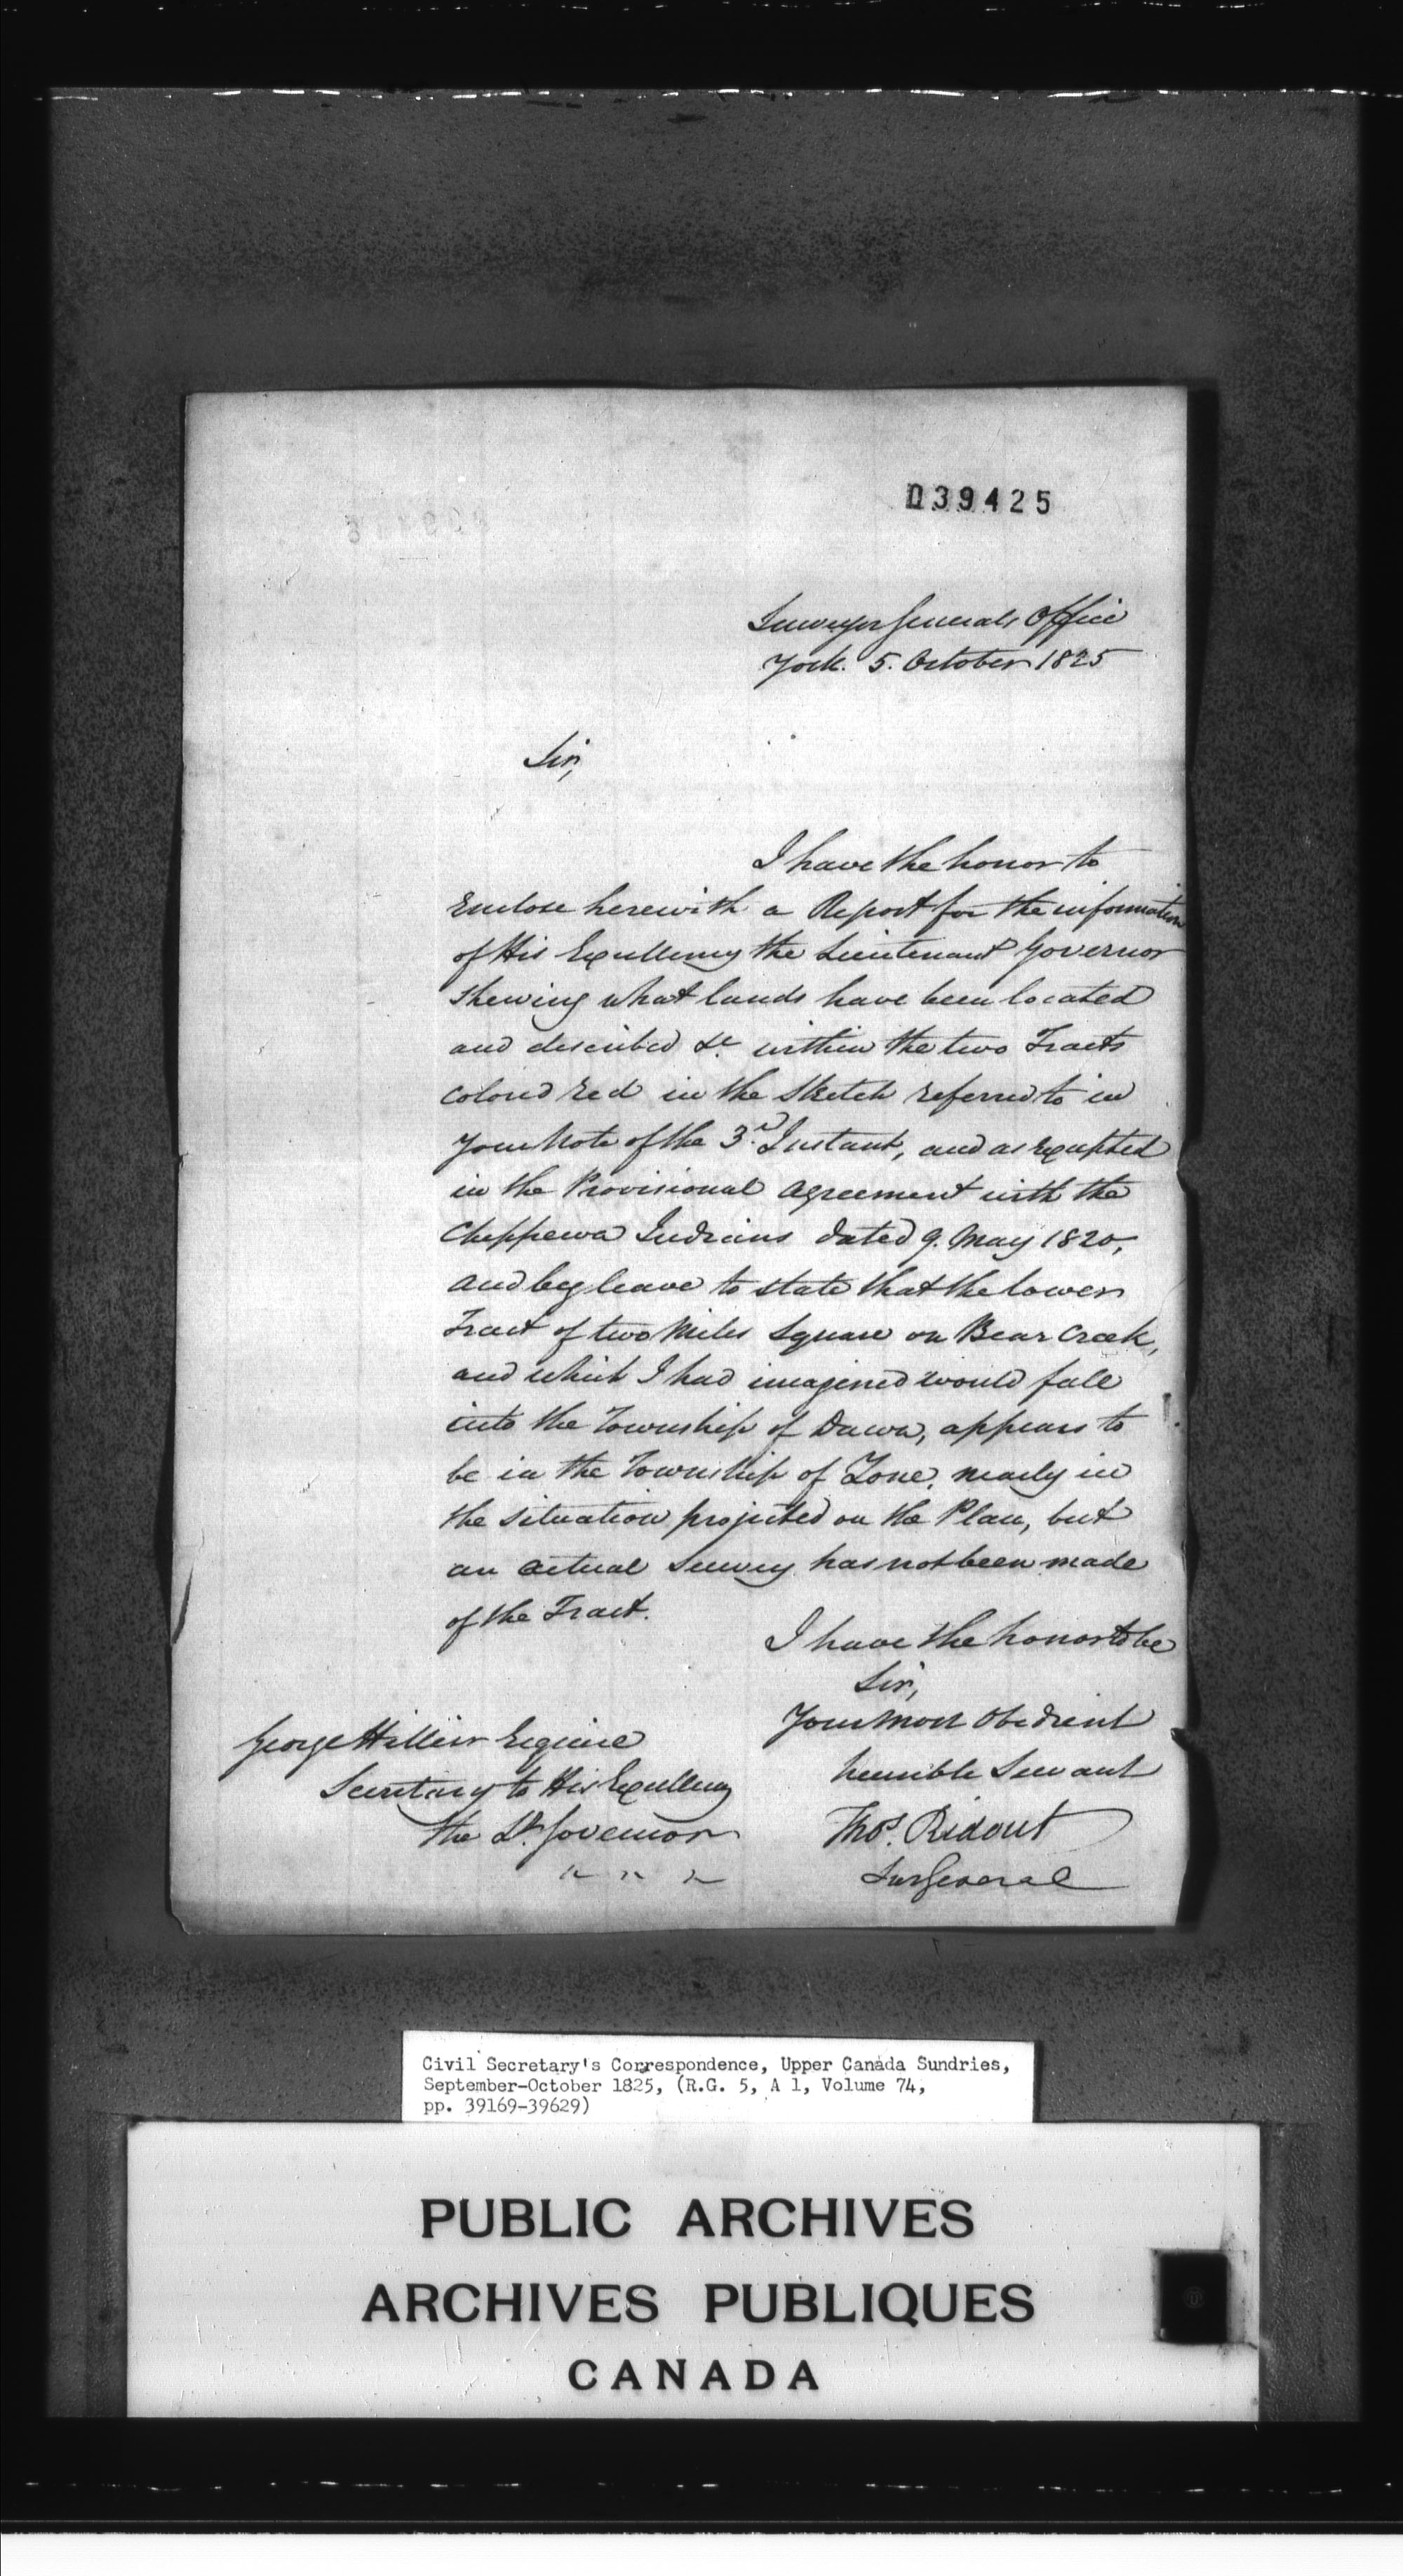 039425
Surveyor Generals Office
York. 5. October 1825
Sir,
I have the honor to
Enclose herewith a Report for the information
of His Excellency the Lieutenant Governor
shewing what lands have been located
and described &c. within the two Tracts
colored red in the Sketch referred to in
your Note of the 3rd. Instant, and as excepted
in the Provisional Agreement with the
Cheppewa Indians dated 9. May 1820,
and beg leave to state that the lower
Tract of two Miles Square on Bear Creek,
and which I had imagined would fall
into the Township of Dawn, appears to
be in the Township of Zone, nearly in
the situation projected on the Plan, but
an actual Survey has not been made
of the Tract.
I have the honor to be
Sir,
Your Most Obedient
humble Servant
Thos. Ridout
Sur General
George Hillier Esquire
Secretary to His Excellency
the Lt. Governor
Civil Secretary's Correspondence, Upper Canada Sundries,
September-October 1825, (R.G. 5, A 1, Volume 74,
pp. 39169-39629)
PUBLIC ARCHIVES
ARCHIVES PUBLIQUES
CANADA